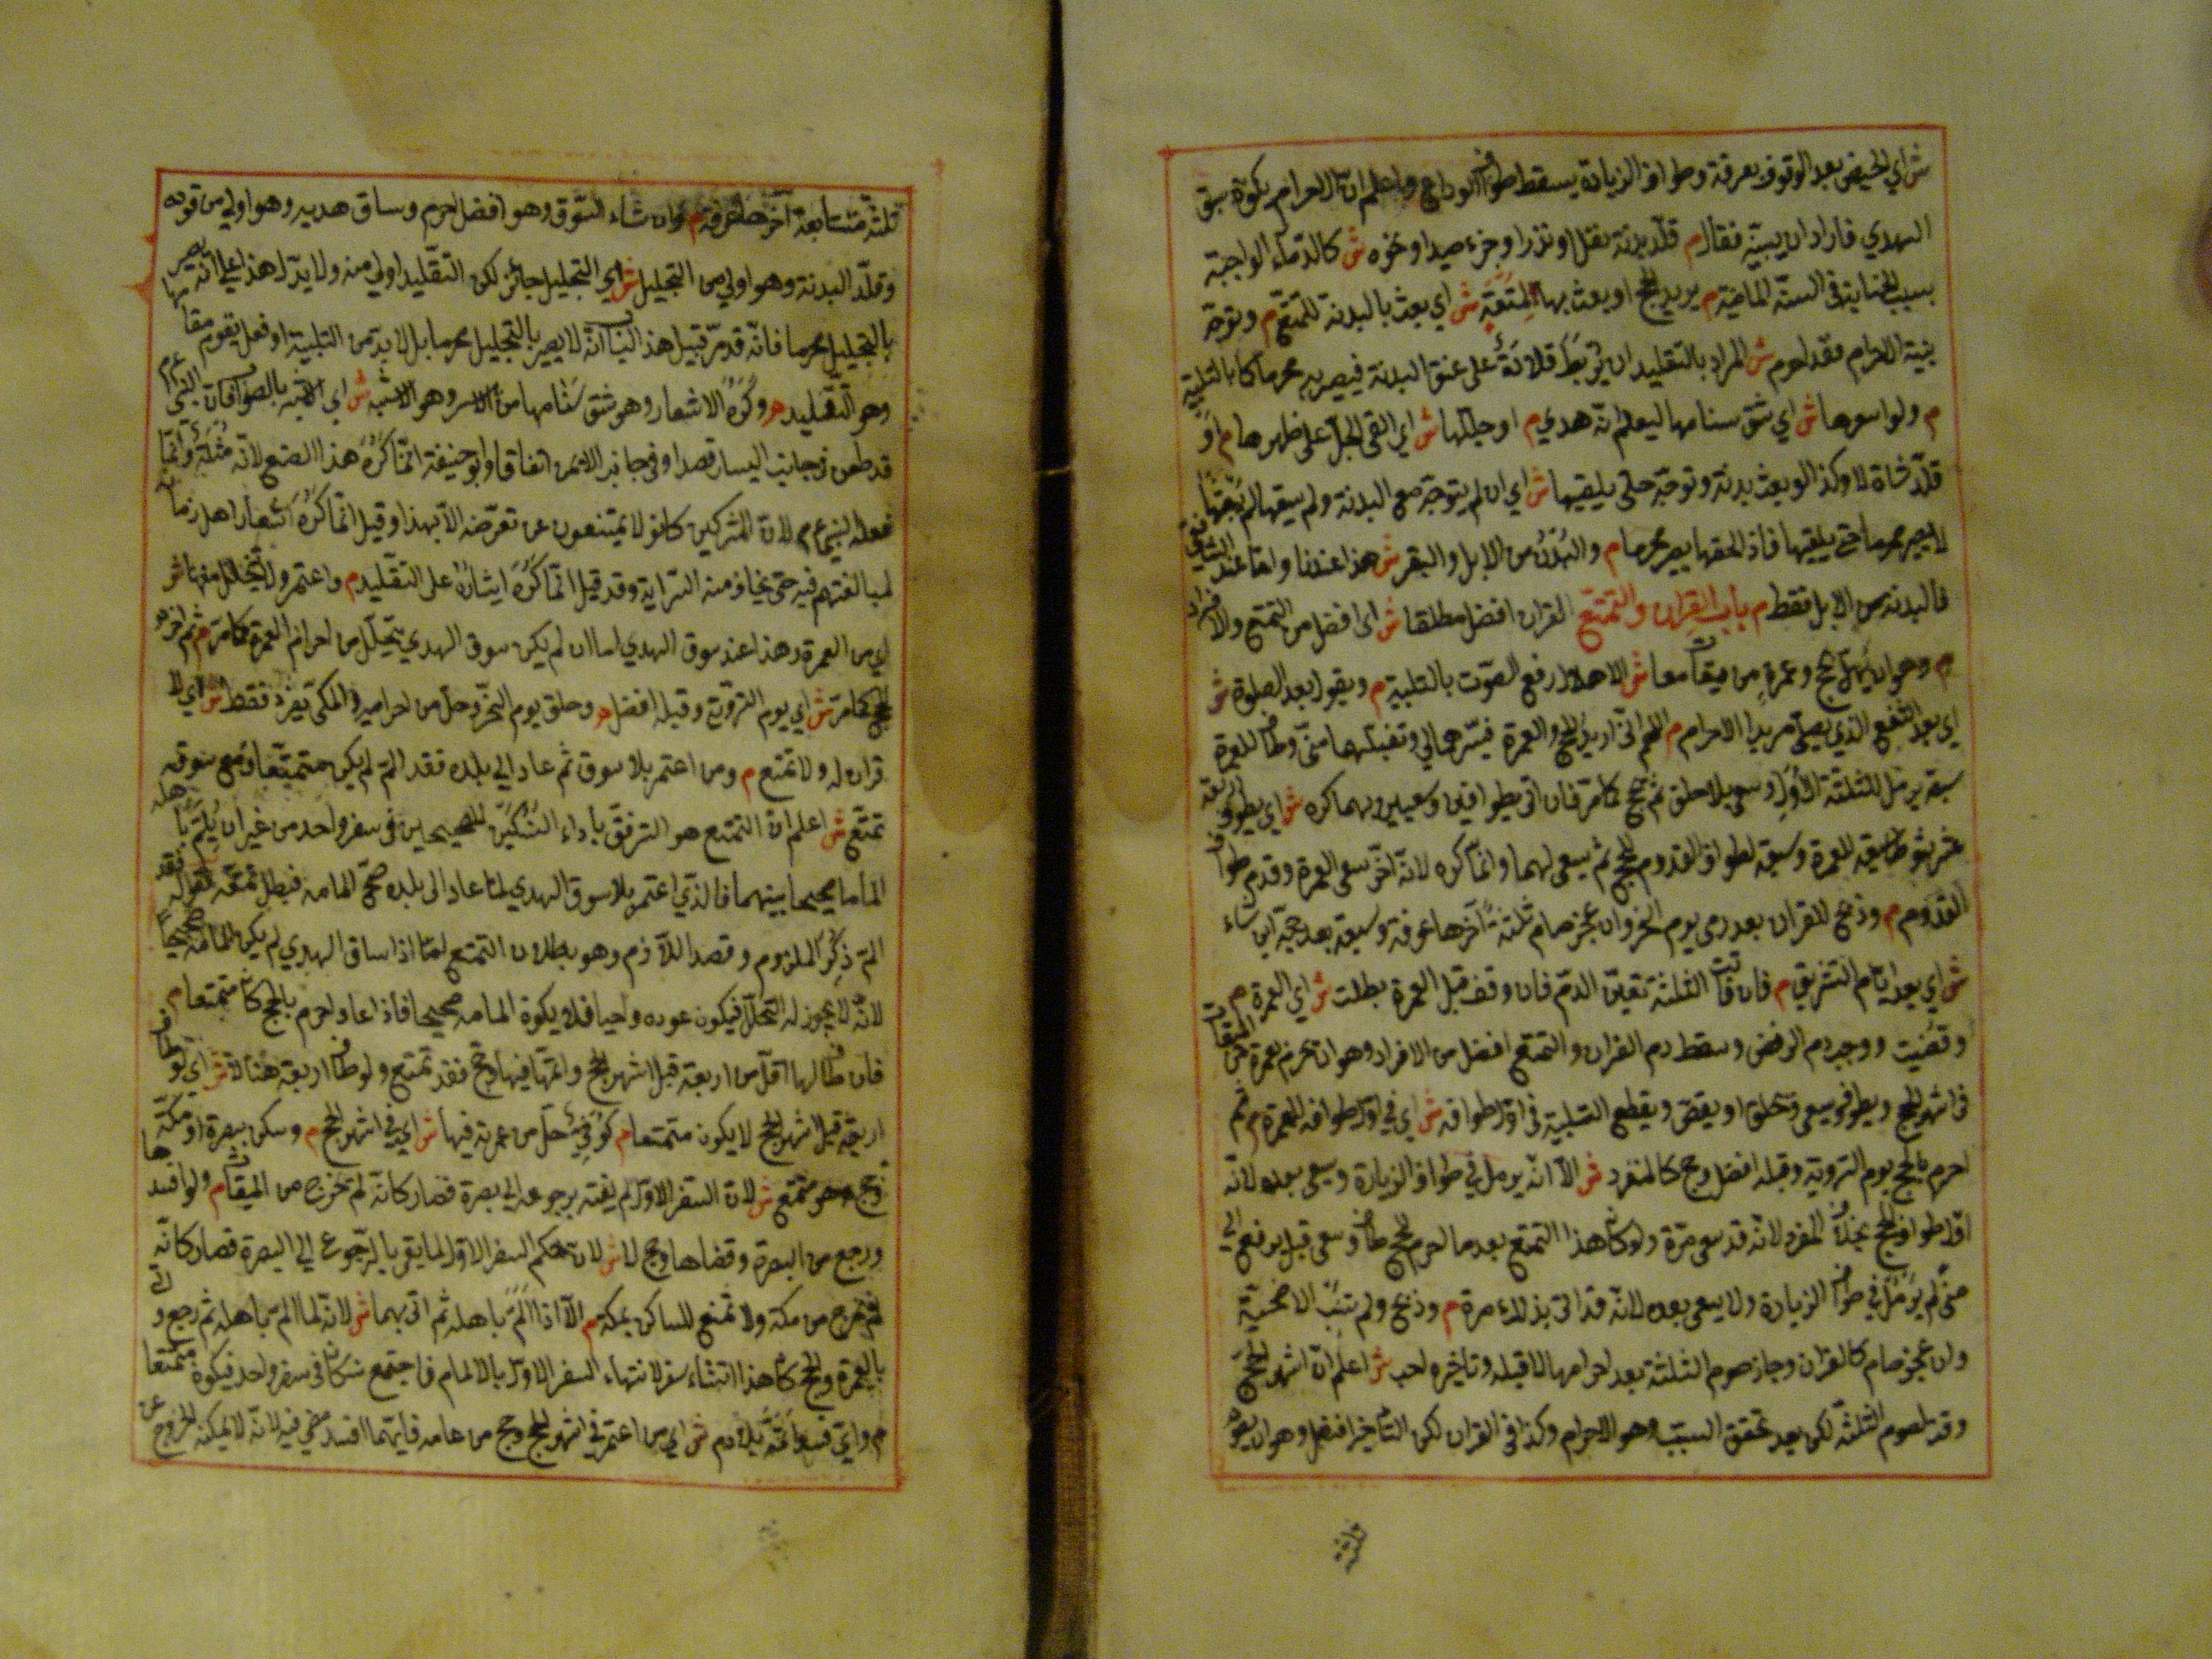 ش اي الحيض بعد الوقوف بعرفة وطواف الزيادة يسقط طواف الوداع واعلم ان الاحرام يكون بسوق
الهدي فاراد ان يبينه فقال م قلد بدنة نفل او نذر او جزء صيد او نحوه ش كالدماء الواجبة
بسبب الجناية في السنة الماضية م يريد الحج او بعث بها لمتعة ش اي بعث بالبدنة للتمتع م وتوجه
بنية الاحرام فقد احرم ش المراد بالتقليد ان يربط قلادة على عنق البدنة فيصير به محرما كما بالتلبية
م ولو اشعرها ش اي شق سنامها ليعلم انه هدي م او جللها ش اي القى الجل على ظهرها م او
قلد شاة لا وكذا لو بعث بدنة وتوجه حتى يلحقها ش اي ان لم يتوجه مع البدنة ولم يسقها لم
لا يصير محرما حتى يلحقها فاذا لحقها يصير محرما م والبدن من الابل والبقر ش هذا عندنا واما عند الشافعي
فالبدنة من الابل فقط م باب القران والتمتع القران افضل مطلقا ش اي افضل من التمتع والافراد
م وهو ان يهل بحج وعمرة من ميقات معا ش الاهلال رفع الصوت بالتلبية م ويقول بعد الصلوة ش
اي بعد الشفع الذي يصلي مريدا الاحرام م اللهم اني اريد الحج والعمرة فيسرهما لي وتقبلهما مني وطاف للعمرة
سبعة يرمل للثلثة الاول وسعى بلا حلق ثم حج كما مر فان اتى بطوافين وسعيين لهما كره ش اي يطوف اربعة
عشر شوطا سبعة للعمرة وسبعة لطواف القدوم للحج ثم يسعى لهما وانما كره لانه اخر سعي العمرة وقدم طواف
القدوم م وذبح للقران بعد رمي يوم النحر وان عجز صام ثلثة آخرها عرفة وسبعة بعد حجه اين شاء
ش اي بعد ايام التشريق م فان فاتت الثلثة تعين الدم فان وقف قبل العمرة بطلت ش اي العمرة م
وقضيت ووجب دم الرفض وسقط دم القران والتمتع افضل من الافراد وهو ان يحرم بعمرة من الميقات
في اشهر الحج ويطوف ويسعى ويحلق او يقصر ويقطع التلبية في اول طوافه ش اي في اول طوافه للعمرة م ثم
احرم بالحج يوم التروية وقبله افضل وحج كالمفرد ش الا انه يرمل في طواف الزيارة ويسعى بعده لانه
اول طواف للحج بخلاف المفرد لانه قد سعى مرة ولو كان هذا المتمتع بعد ما احرم بالحج طاف وسعى قبل ان يروح الى
منى لم يرمل في طواف الزيارة ولا يسعى بعده لانه قد اتى بذلك مرة م وذبح ولم تنب الاضحية
وان عجز صام كالقران وجاز صوم الثلثة بعد احرامها لا قبله وتاخيره احب ش اعلم ان اشهر الحج
وقت لصوم الثلثة لكن بعد تحقق السبب وهو الاحرام وكذا في القران لكن التاخير افضل وهو ان يصوم
ثلثة متتابعة آخرها عرفة م وان شاء السوق وهو افضل احرم وساق هديه وهو اولى من قوده
وقلد البدنة وهو اولى من التجليل ش اي التجليل جائز لكن التقليد اولى منه ولا يدل هذا على انه يصير
بالتجليل محرما فانه قد مر قبيل هذا الباب انه لا يصير بالتجليل محرما بل لا بد من التلبية او فعل يقوم مقامها
وهو التقليد م وكره الاشعار وهو شق سنامها من الايسر وهو الاشبه ش اي الاشبه بالصواب فان النبي عم
قد طعن في جانب اليسار قصدا وفي جانب الايمن اتفاقا وابو حنيفة انما كره هذا الصنع لانه مثلة وانما
فعله النبي عم لان المشركين كانوا لا يمتنعون عن تعرضه الا بهذا وقيل انما كره اشعار اهل زمانه
لمبالغتهم فيه حتى يخاف منه السراية وقد قيل انما كره ايثاره على التقليد م واعتمر ولا يتحلل منها ش
اي من العمرة وهذا عند سوق الهدي اما ان لم يكن سوق الهدي يتحلل من احرام العمرة كما مر م ثم احرم
بالحج كما مر ش اي يوم التروية وقبله افضل م وحلق يوم النحر وحل من احراميه والمكي يفرد فقط ش اي لا
قران له ولا تمتع م ومن اعتمر بلا سوق ثم عاد الى بلده فقد الم لم يكن متمتعا ومع سوقه
تمتع ش اعلم ان التمتع هو الترفق باداء النسكين الصحيحين في سفر واحد من غير ان يلم باهله
الماما صحيحا بينهما فالذي اعتمر بلا سوق الهدي لما عاد الى بلده صح المامه فبطل تمتعه فقوله فقد
الم ذكر الملزوم وقصد اللازم وهو بطلان التمتع اما اذا ساق الهدي لم يكن المامه صحيحا
لانه لا يجوز له التحلل فيكون عوده واجبا فلا يكون المامه صحيحا فاذا عاد احرم بالحج كان متمتعا م
فان طاف لها اقل من اربعة قبل اشهر الحج واتمها فيها وحج فقد تمتع ولو طاف اربعة هنا لا ش اي لو طاف
اربعة قبل اشهر الحج لا يكون متمتعا م كوفي حل من عمرته فيها ش اي في اشهر الحج م وسكن ببصرة او مكة
وحج فهو متمتع ش لان السفر الاول لم ينته برجوعه الى بصرة فصار كانه لم يخرج من الميقات م ولو افسدها
ورجع من البصرة وقضاها وحج لا ش لان حكم السفر الاول لما بقي بالرجوع الى البصرة فصار كانه
لم يخرج من مكة ولا تمتع للساكن بمكة م الا اذا الم باهله ثم اتى بهما ش لانه لما الم باهله ثم رجع واتى
بالعمرة والحج كان هذا انشاء سفر لانتهاء السفر الاول بالالمام فاجتمع نسكان في سفر واحد فيكون متمتعا
م واي فسد اتمه بلا دم ش اي من اعتمر في اشهر الحج وحج من عامه فايهما افسد مضى فيه لانه لا يمكنه الخروج عن